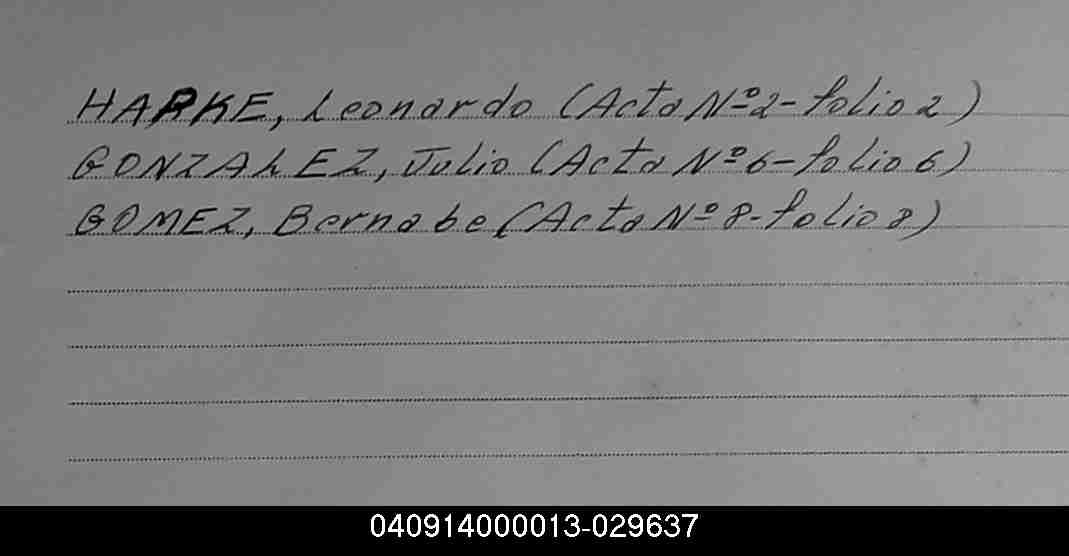 HARKE, Leonardo (Acta Nº2-folio 2)
GONZALEZ, Julio (Acta Nº6-folio 6)
GOMEZ, Bernabe (Acta Nº8-folio 8)
040914000013-029637